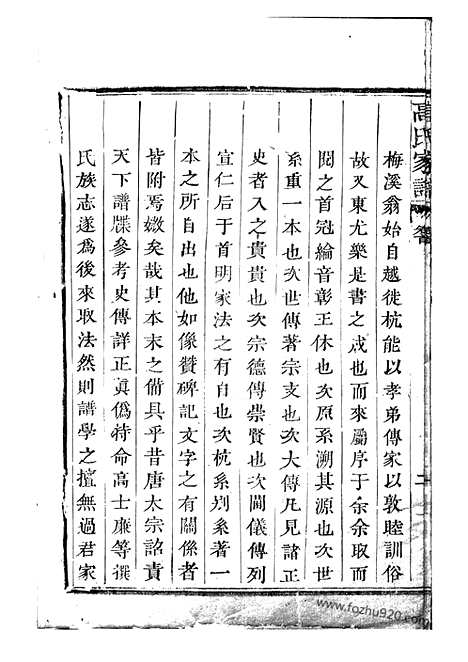 高氏家譜
梅溪翁始自越徙杭能以孝弟傳家以敦睦訓俗
故又東尤樂是書之成也而來屬序于余余取而
閱之首冠綸音彰王休也次原系溯其源也次世
系重一本也次世傳著宗支也次大傳凡見諸正
史者入之貴貴也次宗德傳崇賢也次閫儀傳列
宣仁后于首明家法之有自也次杭系別系著一
本之所自出也他如像贊碑記文字之有關係者
皆附焉媺矣哉其本末之備具乎昔唐太宗詔責
天下譜牒參考史傳詳正眞僞特命高士廉等撰
氏族志遂爲後來取法然則譜學之擅無過君家
www.fozhu920.com